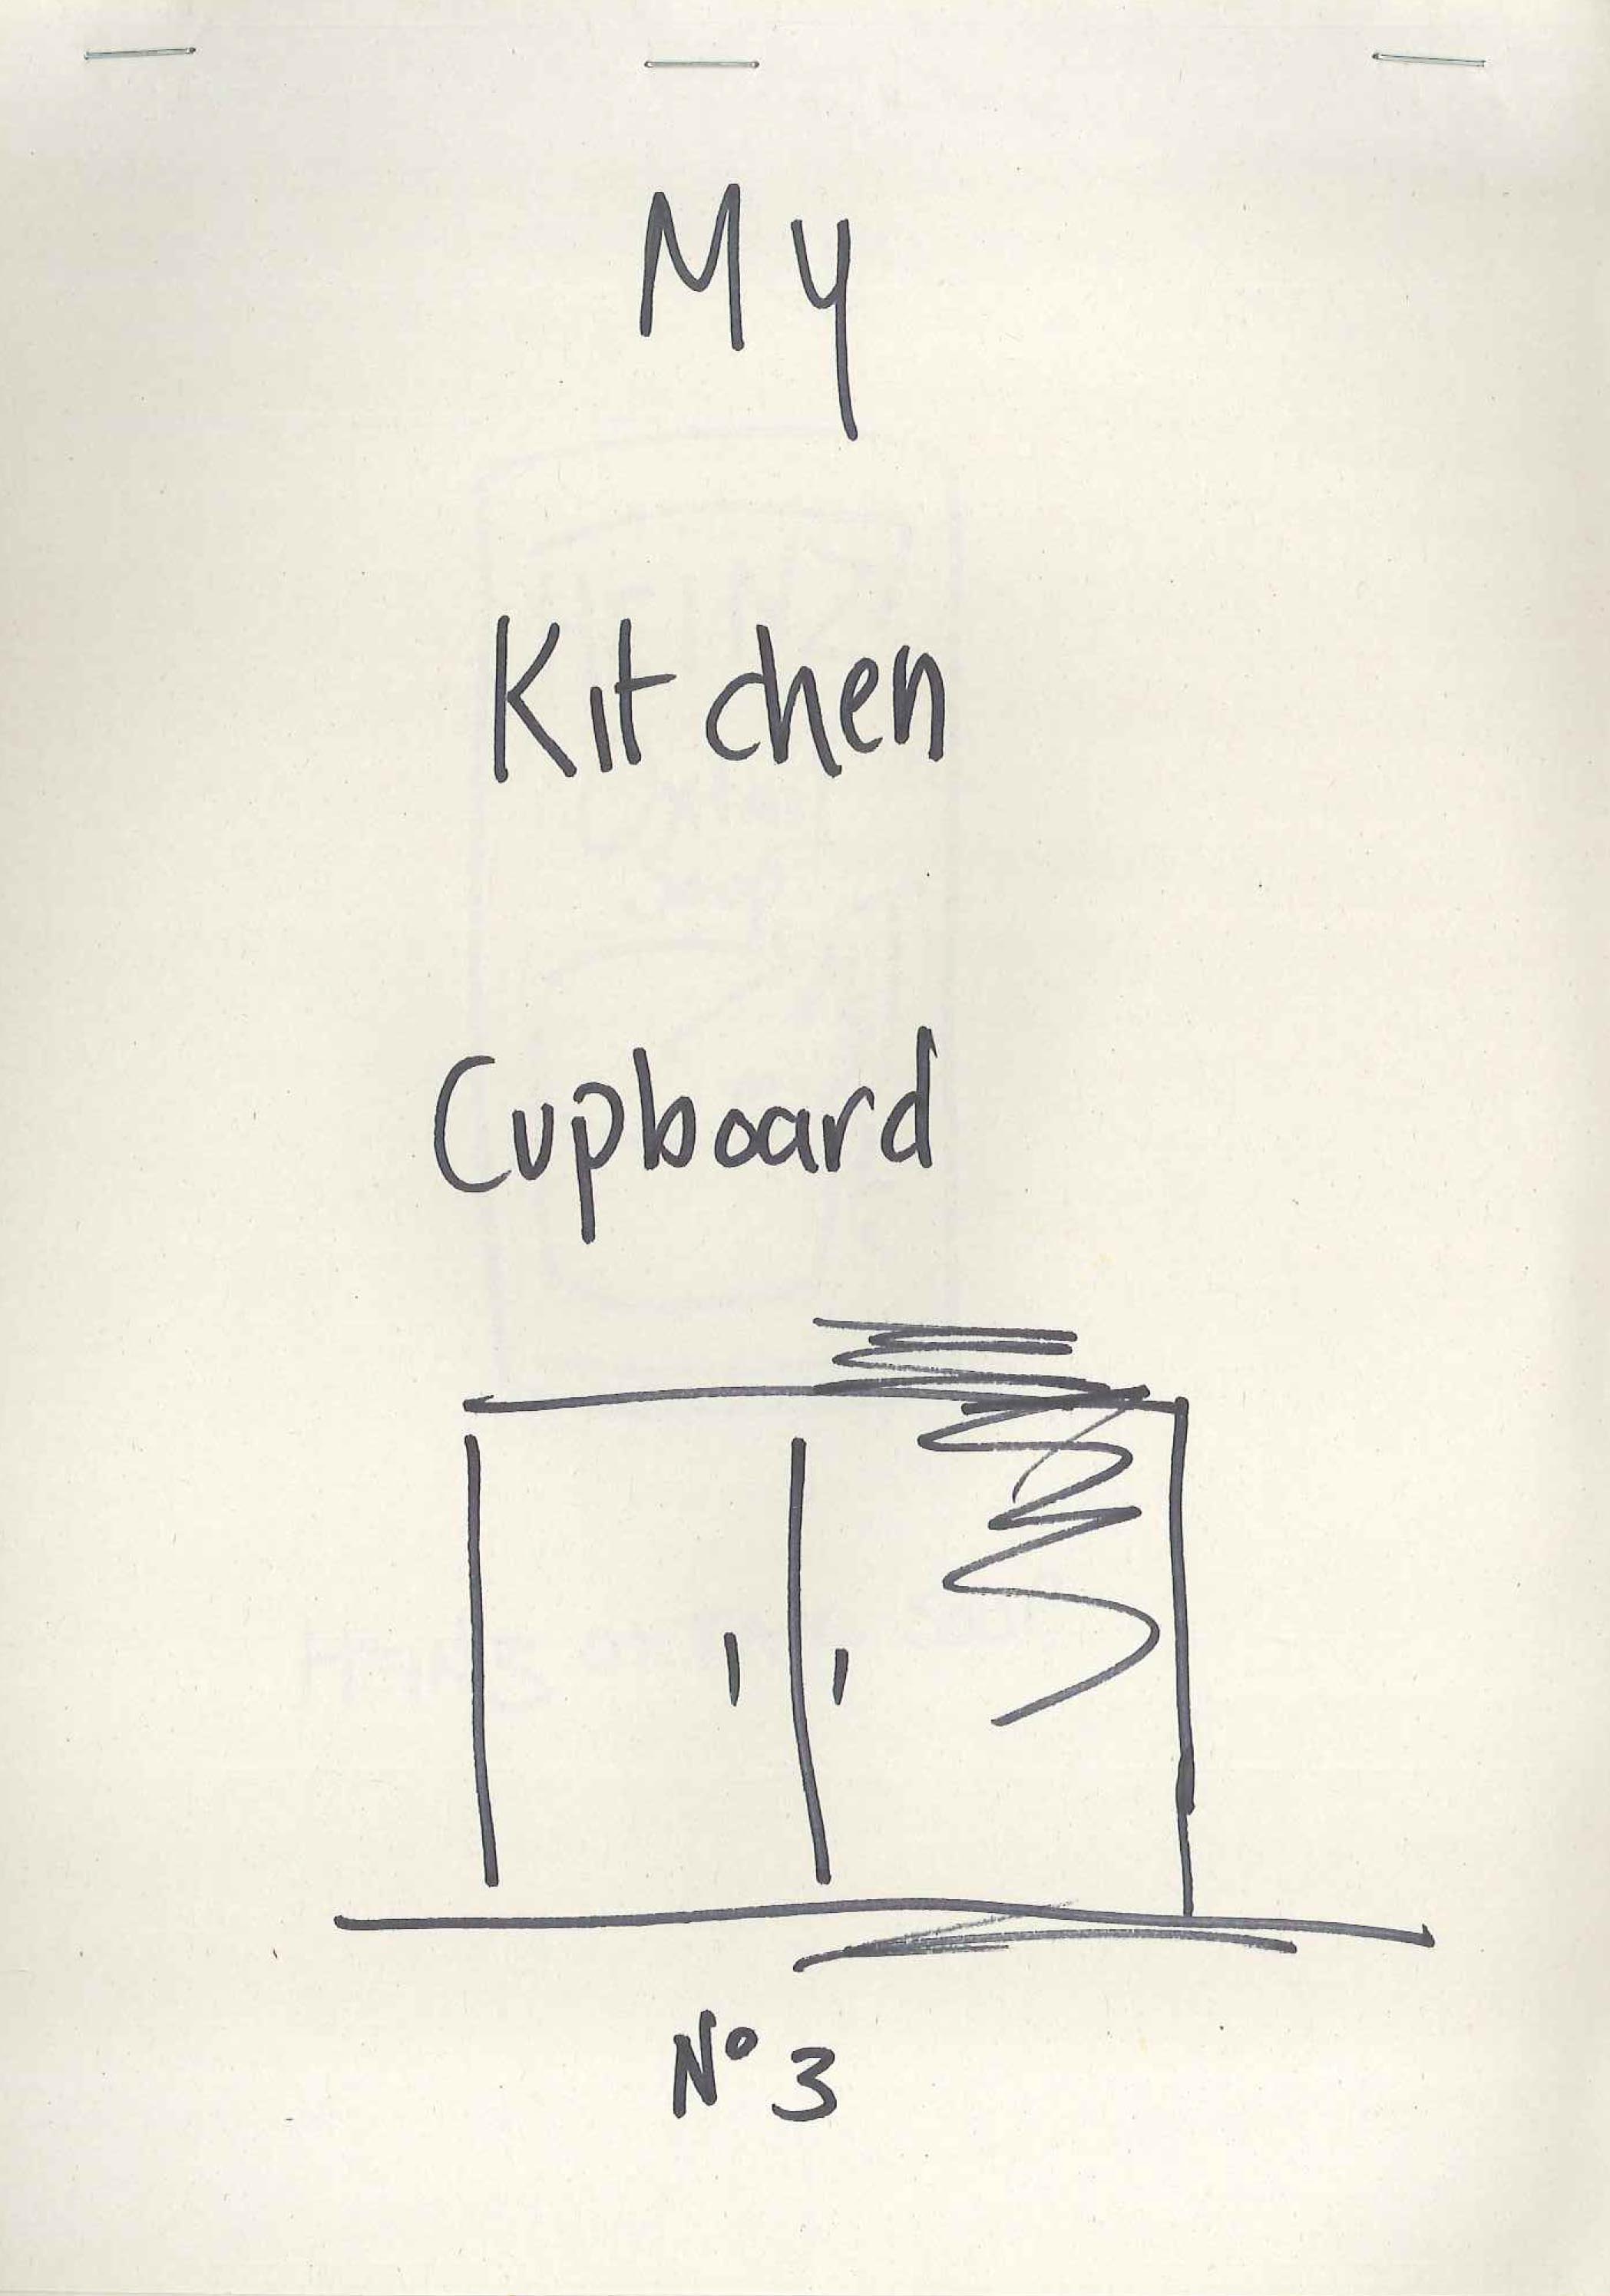 My
Kitchen
Cupboard
Nº 3